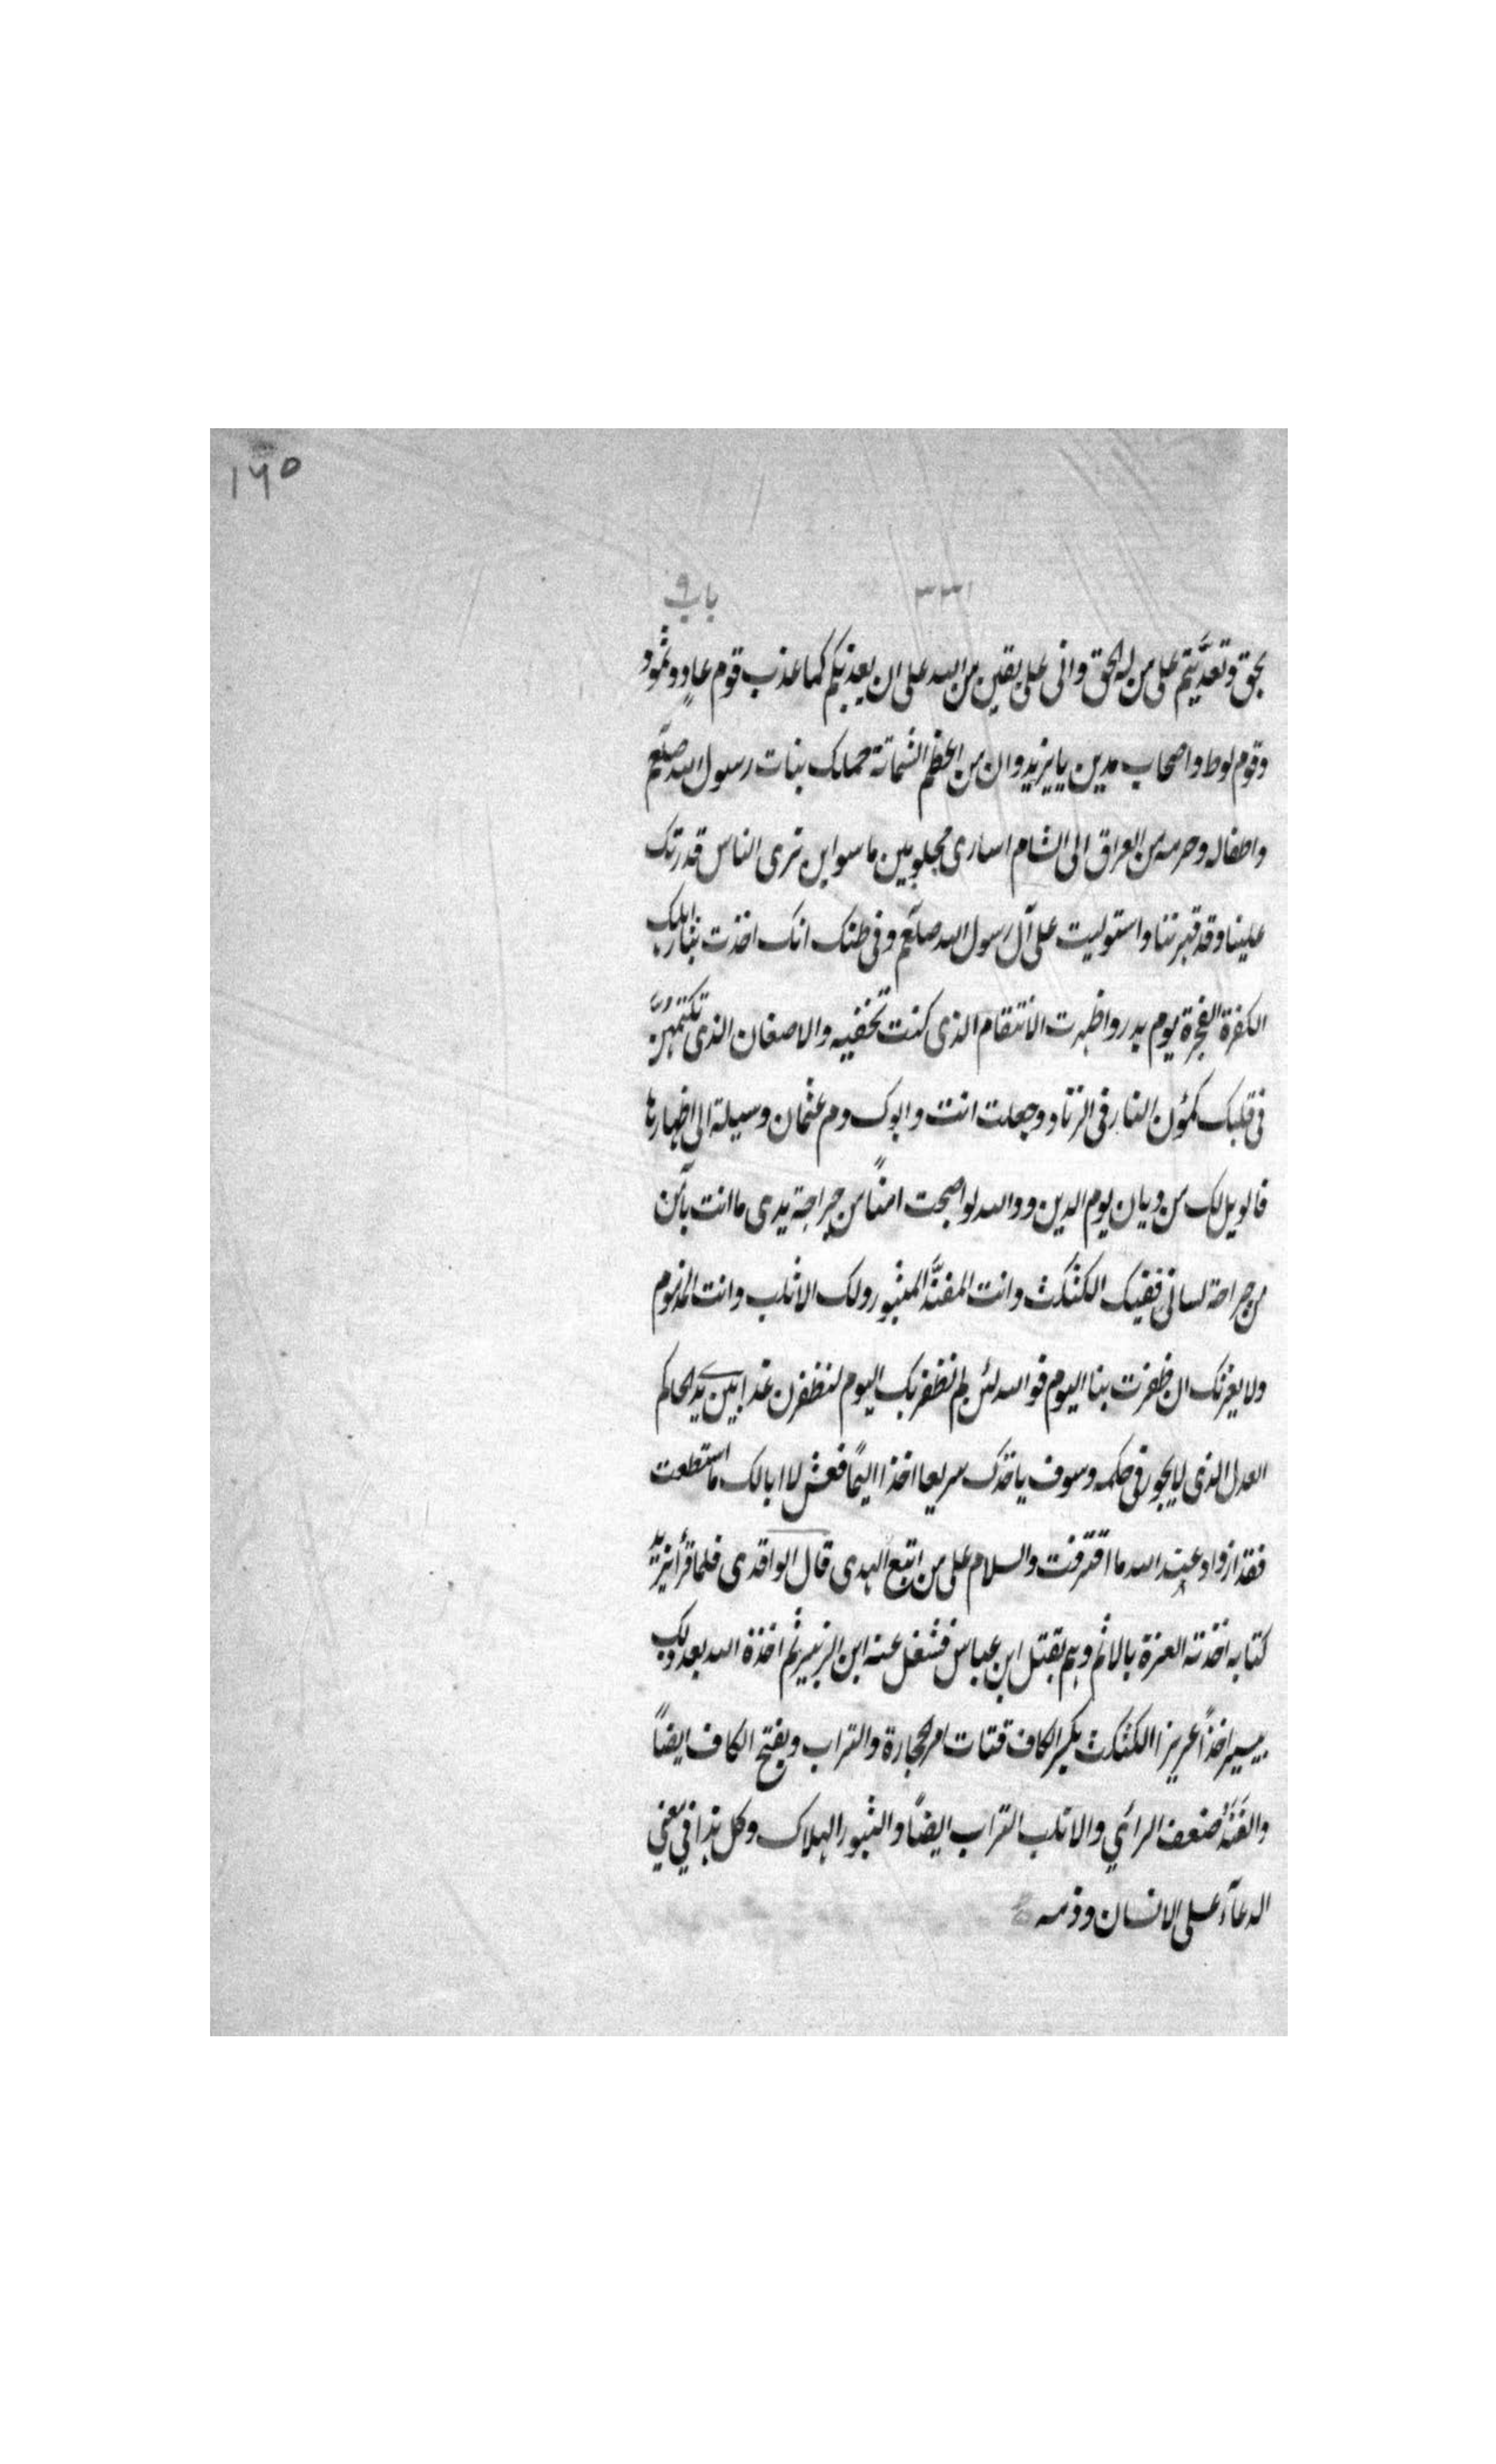 ١٦٥
٣٣١ باب ٩
بحق وتعدَّيتم على من له الحق وانى على يقين من الله على ان يعذبكم كما عذب قوم عادٍ وثمود
وقوم لوط واصحاب مدين يا يزيد وان من اعظم الشماتة حملك بنات رسول الله صلعم
واطفاله وحرمه من العراق الى الشام اسارى مجلوبين ماسوابين ترى الناس قدرتك
علينا وقد قهرتنا واستوليت على آل رسول الله صلعم وفى ظنك انك اخذت بثار اهلك
الكفرة الفجرة يوم بدر واظهرت الانتقام الذى كنت تخفيه والاضغان الذى تكتمهن
فى قلبك كمُون النار فى الزناد وجعلت انت وابوك دم عثمان وسيلة الى اظهارها
فالويل لك من ديان يوم الدين ووالله لو اصبحت امنًا من جراحة يدى ما انت بآمن
من جراحة لسانى ففيك الكثكث وانت المفنَّد المثبور ولك الاثلب وانت المذموم
ولا يغرنك ان ظفرت بنا اليوم فوالله لئن لم نظفر بك اليوم لنظفرن غدا بين يدى الحاكم
العدل الذى لا يجور فى حكمه وسوف ياخذك سريعا اخذا اليمًا فعش لا ابا لك ما استطعت
فقد ازداد عند الله ما اقترفت والسلام على من اتبع الهدى قال الواقدى فلما قرأ يزيد
كتابه اخذته العزة بالاثم وهم بقتل ابن عباس فشغل عنه ابن الزبير ثم اخذه الله بعد ذلك
بيسير اخذاً عزيزا الكثكث بكسر الكاف فتات من الحجارة والتراب وبفتح الكاف ايضاً
والفَنَدُ ضعف الرأي والاثلب التراب ايضًا والثبور الهلاك وكل هذا فى معني
الدعآء على الانسان وذمه